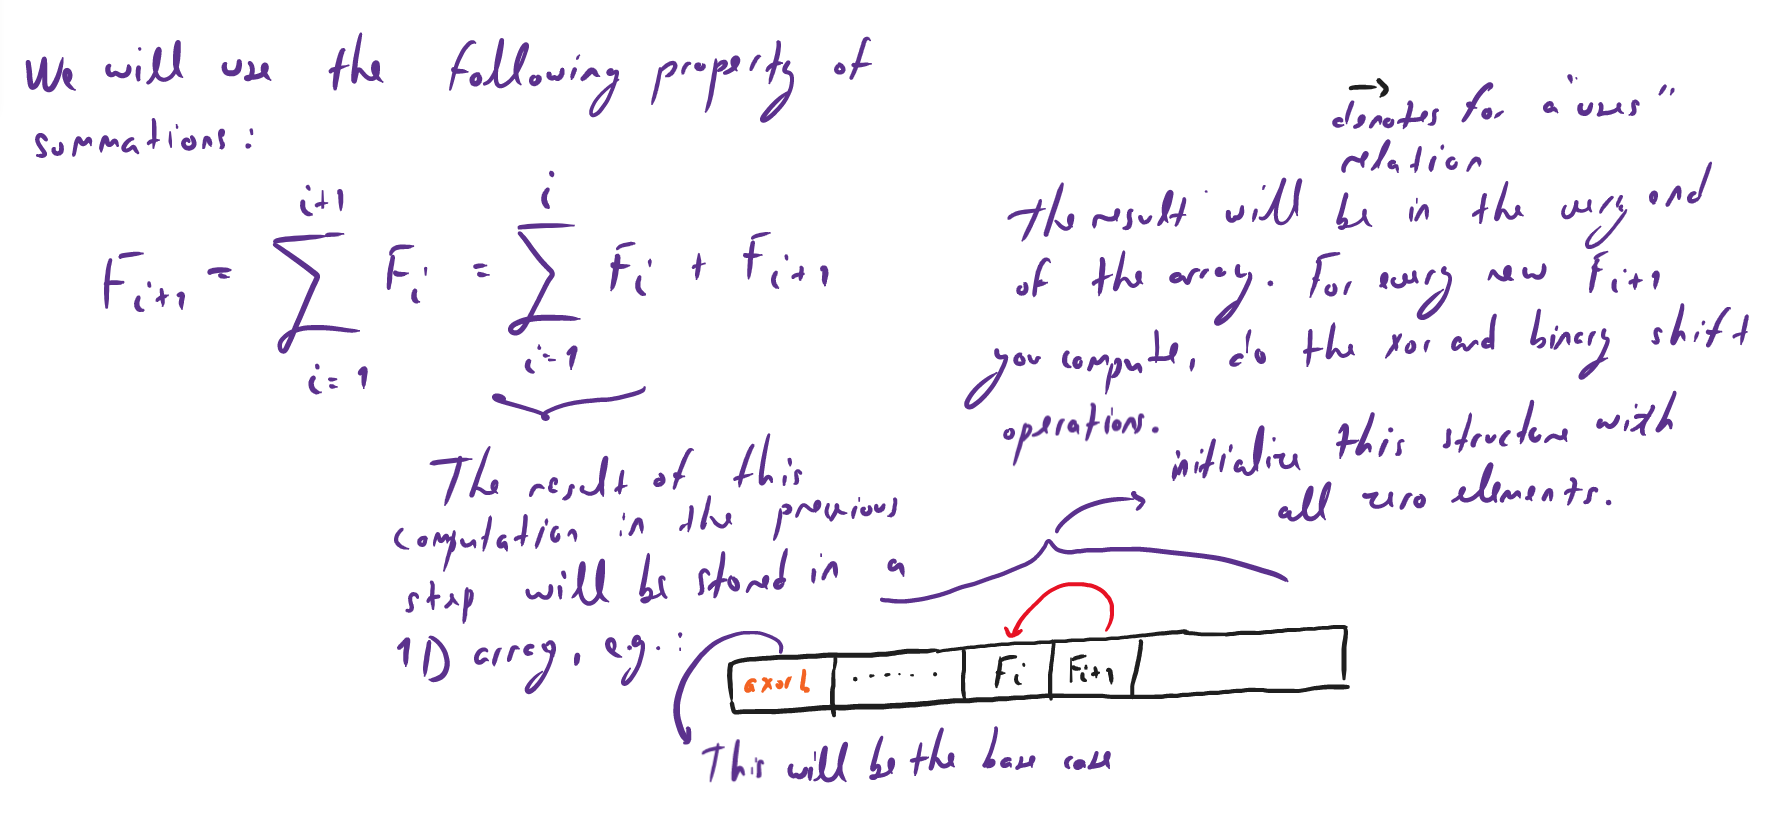 We will use the following property of
summations:
F_{i+1} = \sum_{i=1}^{i+1} F_i = \sum_{i=1}^{i} F_i + F_{i+1}
The result of this
computation in the previous
step will be stored in a
1D array, e.g.:
→
denotes for a "uses"
relation
The result will be in the very end
of the array. For every new F_{i+1}
you compute, do the xor and binary shift
operations.
initialize this structure with
all zero elements.
a xor b ...... F_i F_{i+1}
This will be the base case